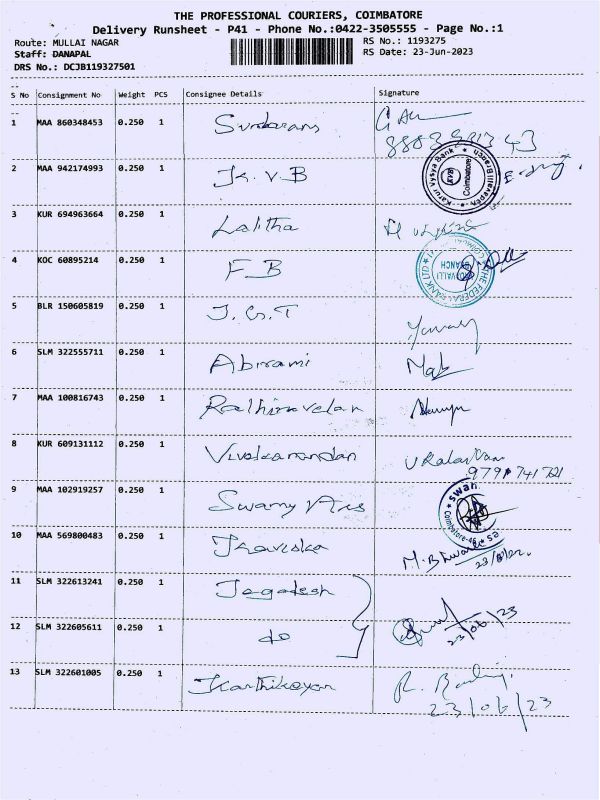 THE PROFESSIONAL COURIERS, COIMBATORE
Delivery Runsheet - P41 - Phone No.:0422-3505555 - Page No.:1
Route: MULLAI NAGAR
RS No.: 1193275
Staff: DANAPAL
RS Date: 23-Jun-2023
DRS No.: DCJB119327501
S No Consignment No Weight PCS Consignee Details Signature
1 MAA 860348453 0.250 1 Sundaram
2 MAA 942174993 0.250 1 K.V.B
Karur Vysya Bank Coimbatore
3 KUR 694963664 0.250 1 Lalitha
4 KOC 60895214 0.250 1 F B
THE FEDERAL BANK LTD
BRANCH
5 BLR 150605819 0.250 1 J.G.T
6 SLM 322555711 0.250 1 Abirami
7 MAA 100816743 0.250 1 Rathinavelan
8 KUR 609131112 0.250 1 Vivekanandan
9791741721
9 MAA 102919257 0.250 1 Swamy
Coimbatore-46
10 MAA 569800483 0.250 1
11 SLM 322613241 0.250 1 Jagadesh
12 SLM 322605611 0.250 1 do 23/06/23
13 SLM 322601005 0.250 1 Karthikeyan
23/06/23